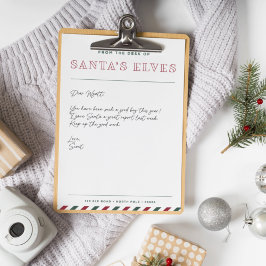 FROM THE DESK OF
SANTA'S ELVES
Dear Wyatt,
You have been such a good boy this year!
I gave Santa a great report last week.
Keep up the good work.
Love,
NORTH POLE